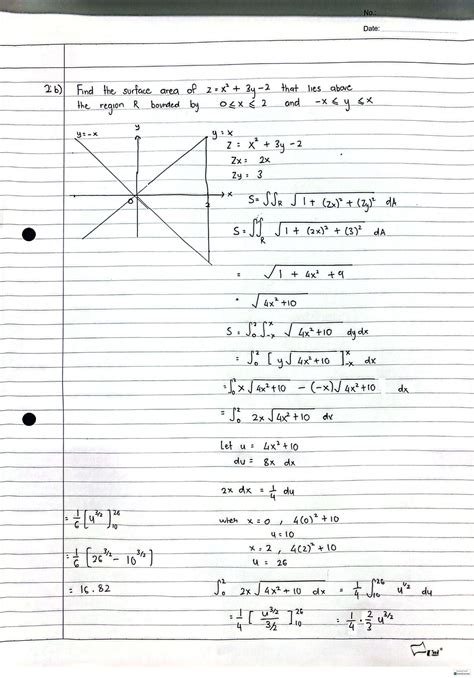 No.:
Date:
2b) Find the surface area of z = x² + 3y - 2 that lies above
the region R bounded by 0 ≤ x ≤ 2 and -x ≤ y ≤ x
y = -x
y
y = x
x
0
2
z = x² + 3y - 2
zx = 2x
zy = 3
S = ∫∫R √1 + (zx)² + (zy)² dA
S = ∫∫R √1 + (2x)² + (3)² dA
= √1 + 4x² + 9
= √4x² + 10
S = ∫₀² ∫₋ₓˣ √4x² + 10 dy dx
= ∫₀² [ y√4x² + 10 ]₋ₓˣ dx
= ∫₀² x√4x² + 10 - (-x)√4x² + 10 dx
= ∫₀² 2x√4x² + 10 dx
Let u = 4x² + 10
du = 8x dx
2x dx = 1/4 du
when x = 0 , 4(0)² + 10
u = 10
x = 2 , 4(2)² + 10
u = 26
∫₀² 2x√4x² + 10 dx = 1/4 ∫₁₀²⁶ u^1/2 du
= 1/4 [ u^3/2 / 3/2 ]₁₀²⁶ = 1/4 · 2/3 u^3/2
= 1/6 [ u^3/2 ]₁₀²⁶
= 1/6 [ 26^3/2 - 10^3/2 ]
= 16.82